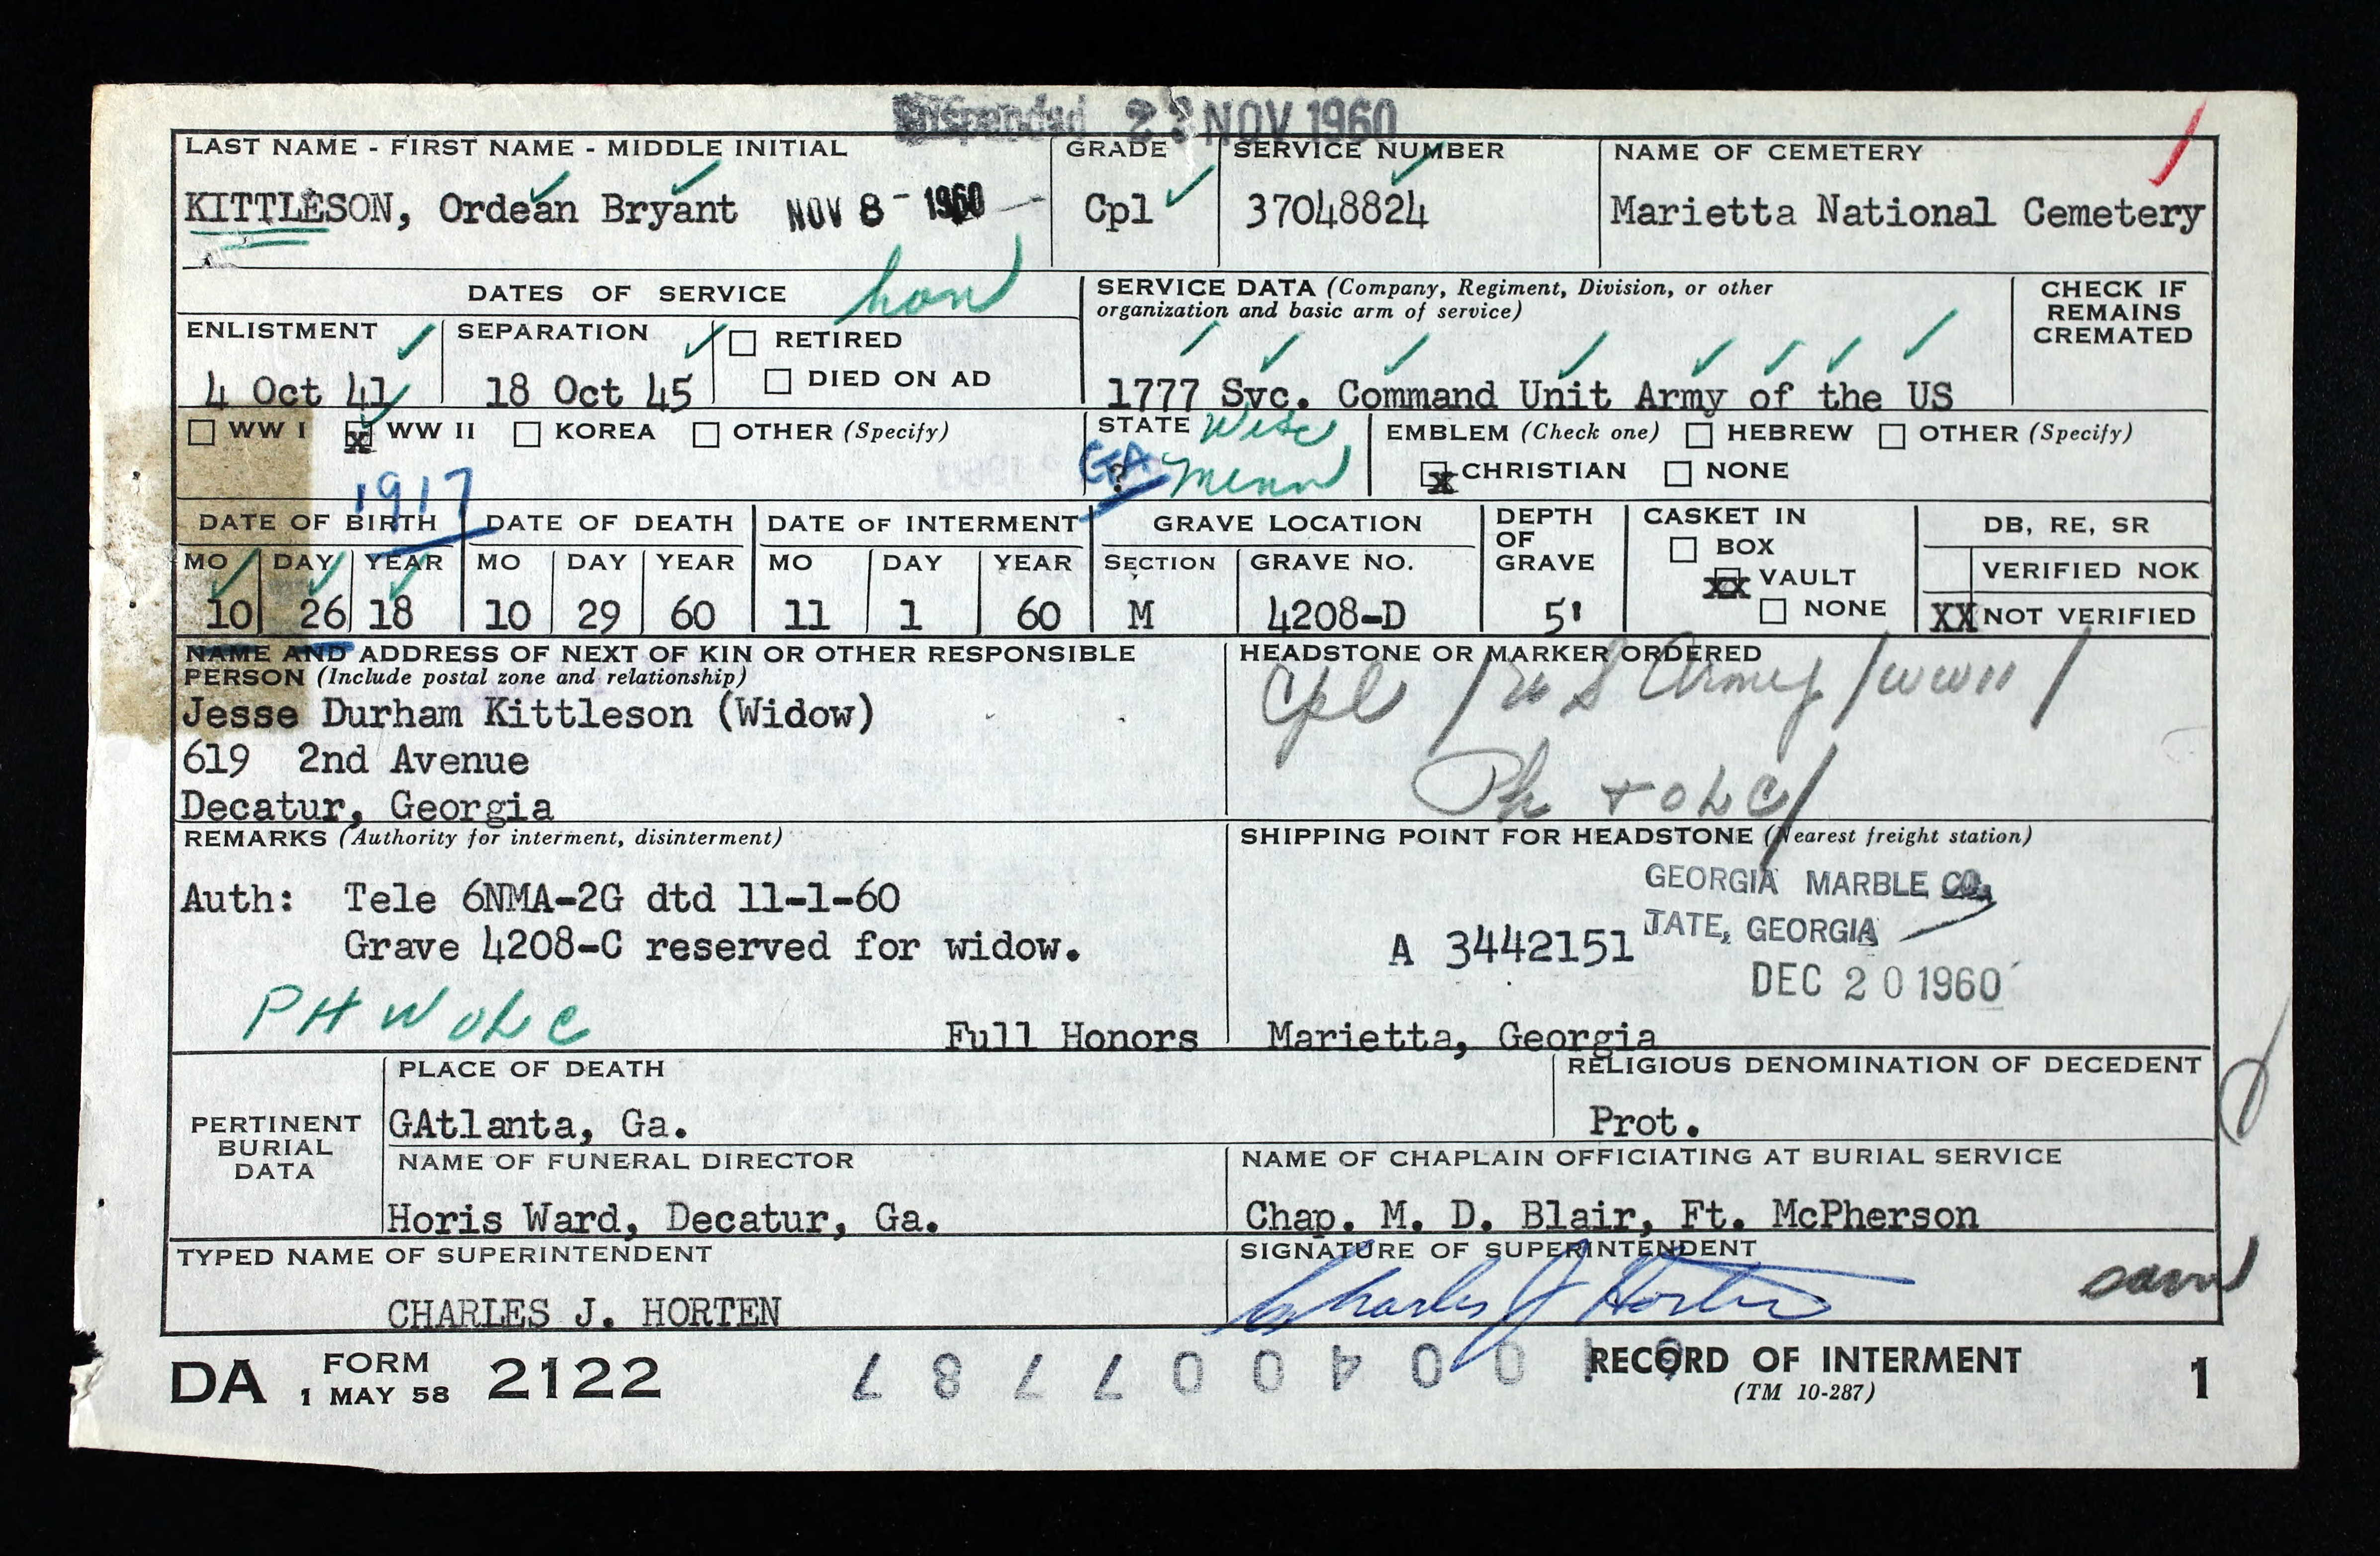 Suspended 23 NOV 1960
LAST NAME - FIRST NAME - MIDDLE INITIAL
KITTLESON, Ordean Bryant NOV 8 - 1960
GRADE
Cpl
SERVICE NUMBER
37048824
NAME OF CEMETERY
Marietta National Cemetery
DATES OF SERVICE hon
ENLISTMENT
4 Oct 41
SEPARATION
18 Oct 45
RETIRED
DIED ON AD
SERVICE DATA (Company, Regiment, Division, or other
organization and basic arm of service)
1777 Svc. Command Unit Army of the US
CHECK IF
REMAINS
CREMATED
WW I x WW II KOREA OTHER (Specify)
STATE Wisc
GA ? Minn
EMBLEM (Check one) HEBREW OTHER (Specify)
x CHRISTIAN NONE
1917
DATE OF BIRTH
MO DAY YEAR
10 26 18
DATE OF DEATH
MO DAY YEAR
10 29 60
DATE OF INTERMENT
MO DAY YEAR
11 1 60
GRAVE LOCATION
SECTION GRAVE NO.
M 4208-D
DEPTH
OF
GRAVE
5'
CASKET IN
BOX
XX VAULT
NONE
DB, RE, SR
VERIFIED NOK
XX NOT VERIFIED
NAME AND ADDRESS OF NEXT OF KIN OR OTHER RESPONSIBLE
PERSON (Include postal zone and relationship)
Jesse Durham Kittleson (Widow)
619 2nd Avenue
Decatur, Georgia
HEADSTONE OR MARKER ORDERED
Cpl / U S Army / WWII /
Ph + OLC /
REMARKS (Authority for interment, disinterment)
Auth: Tele 6NMA-2G dtd 11-1-60
Grave 4208-C reserved for widow.
PH W OLC
Full Honors
SHIPPING POINT FOR HEADSTONE (Nearest freight station)
GEORGIA MARBLE CO.
TATE, GEORGIA
A 3442151
DEC 20 1960
Marietta, Georgia
PERTINENT
BURIAL
DATA
PLACE OF DEATH
GAtlanta, Ga.
RELIGIOUS DENOMINATION OF DECEDENT
Prot.
NAME OF FUNERAL DIRECTOR
Horis Ward, Decatur, Ga.
NAME OF CHAPLAIN OFFICIATING AT BURIAL SERVICE
Chap. M. D. Blair, Ft. McPherson
TYPED NAME OF SUPERINTENDENT
CHARLES J. HORTEN
SIGNATURE OF SUPERINTENDENT
Charles J Horten
DA FORM 2122
1 MAY 58
RECORD OF INTERMENT
(TM 10-287)
1